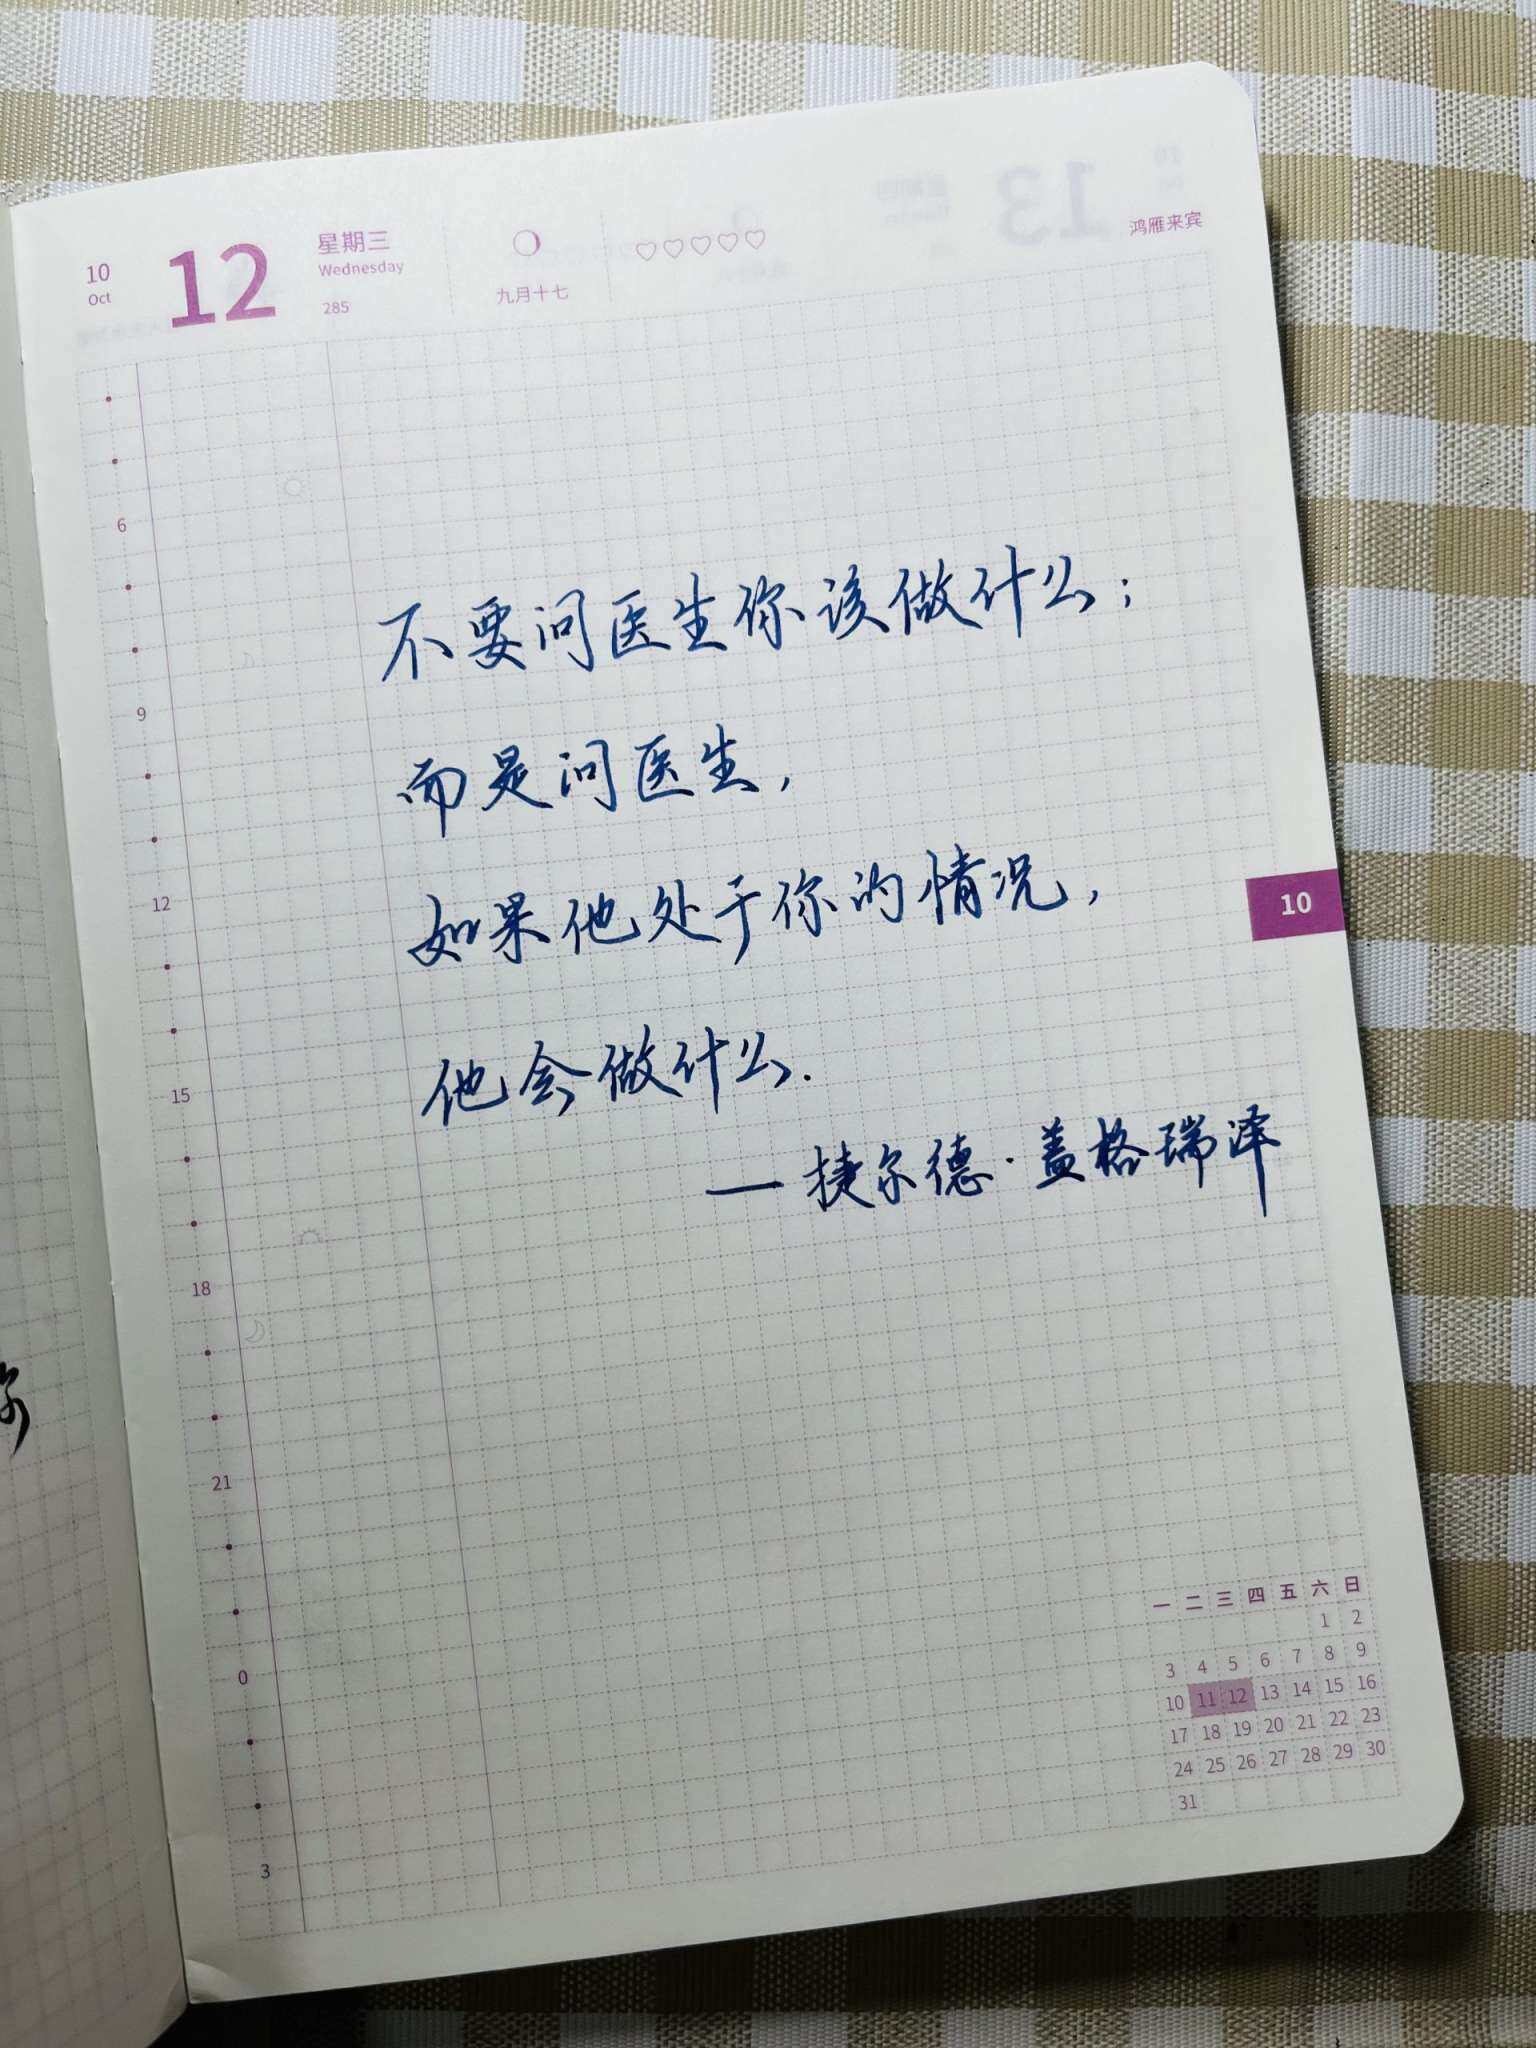 10
Oct
12
星期三
Wednesday
285
九月十七
鸿雁来宾
6
不要问医生你该做什么;
9
而是问医生,
12
如果他处于你的情况,
10
15
他会做什么.
— 捷尔德·盖格瑞泽
18
21
0
3
一 二 三 四 五 六 日
1 2
3 4 5 6 7 8 9
10 11 12 13 14 15 16
17 18 19 20 21 22 23
24 25 26 27 28 29 30
31